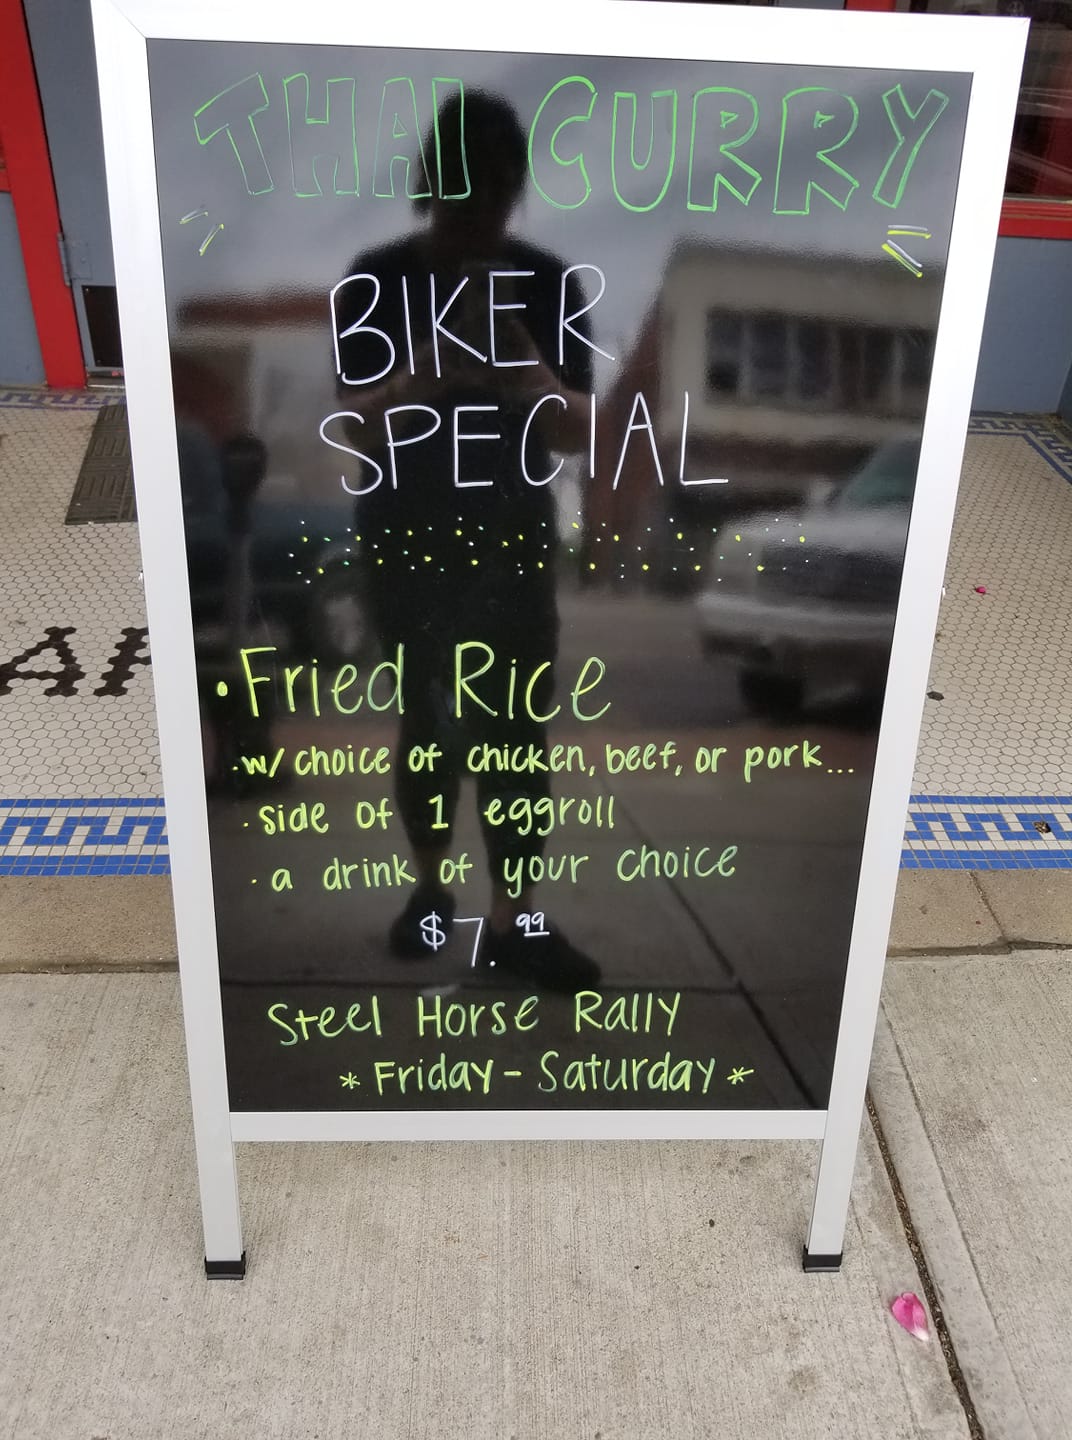 THAI CURRY
BIKER
SPECIAL
• Fried Rice
· w/ choice of chicken, beef, or pork...
· side of 1 eggroll
· a drink of your choice
$7.99
Steel Horse Rally
* Friday - Saturday *